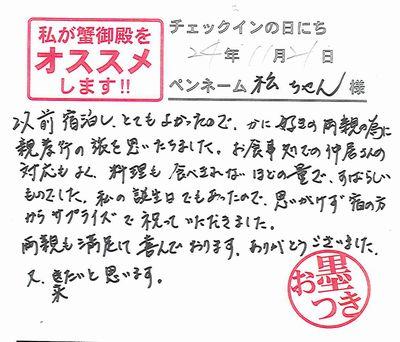 私が蟹御殿を
オススメ
します!!
チェックインの日にち
24年11月21日
ペンネーム 松ちゃん 様
以前宿泊し、とてもよかったので、かに好きの両親の為に
親孝行の旅を思いたちました。お食事処での仲居さんの
対応もよく、料理も食べきれないほどの量で、すばらしい
ものでした。私の誕生日でもあったので、思いがけず宿の方
からサプライズで祝っていただきました。
両親も満足して喜んでおります。ありがとうございました。
又、来たいと思います。
お墨つき